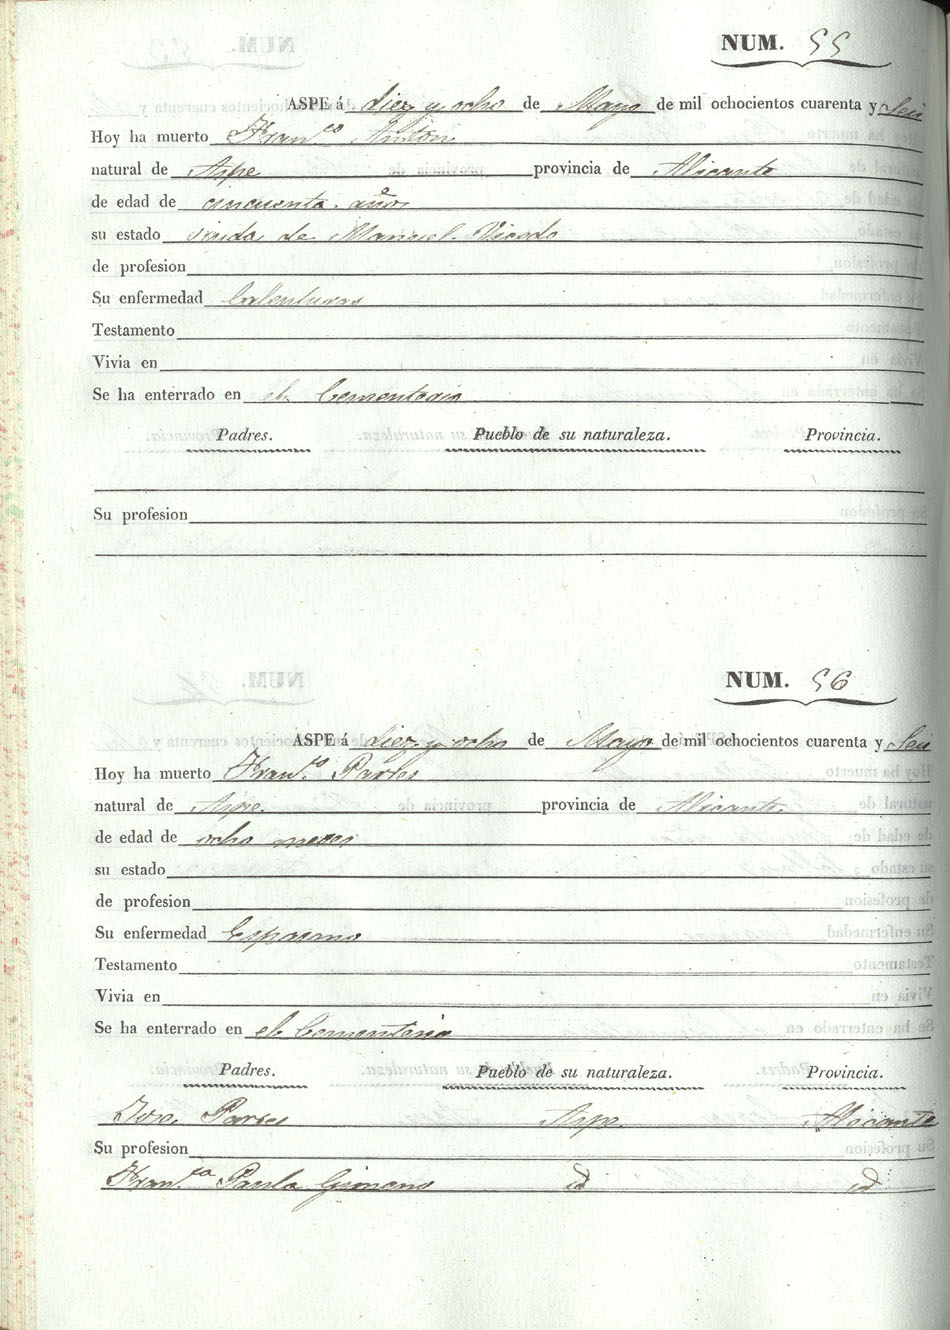 NUM. 55
ASPE á diez y ocho de Mayo de mil ochocientos cuarenta y seis
Hoy ha muerto Fran.co Anton
natural de Aspe provincia de Alicante
de edad de cincuenta años
su estado viuda de Manuel Vicedo
de profesion
Su enfermedad Calenturas
Testamento
Vivia en
Se ha enterrado en el Cementerio
Padres. Pueblo de su naturaleza. Provincia.
Su profesion
NUM. 56
ASPE á diez y ocho de Mayo de mil ochocientos cuarenta y seis
Hoy ha muerto Fran.co
natural de Aspe provincia de Alicante
de edad de ocho meses
su estado
de profesion
Su enfermedad Espasmo
Testamento
Vivia en
Se ha enterrado en el Cementerio
Padres. Pueblo de su naturaleza. Provincia.
Jose Aspe Alicante
Su profesion
Fran.ca Paula Gimeno id id